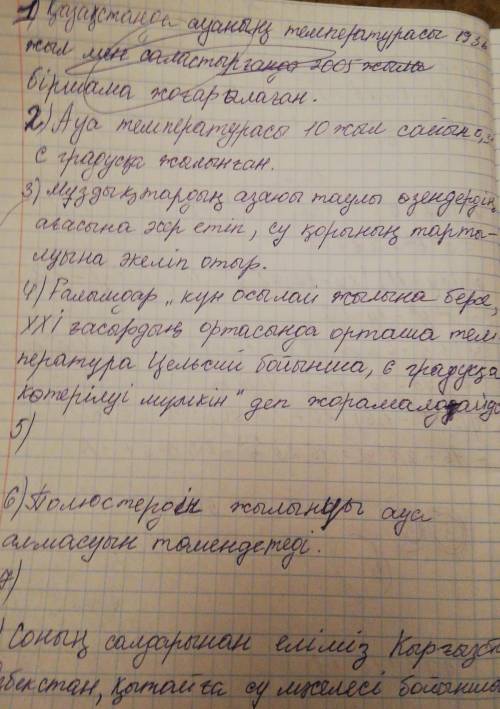 1) Қазақстанда ауаның температурасы 1936
жыл мен саластырғанда 2005 жылы
біршама жоғарылаған.
2) Ауа температурасы 10 жыл сайын 0,3
С градусқа жылынған.
3) Мұздықтардың азаюы таулы өзендердің
ағасына әсер етіп, су қорының тарты-
луына әкеліп отыр.
4) Ғалымдар „күн осылай жылына берсе,
XXI ғасырдың ортасында орташа тем-
пература Цельсий бойынша, 6 градусқа
көтерілуі мүмкін" деп жорамалдайды
5)
6) Полюстердің жылынуы ауа
алмасуын төмендетеді.
7)
Соның салдарынан еліміз Қырғызста
збекстан, қытайға су мәселесі бойынша